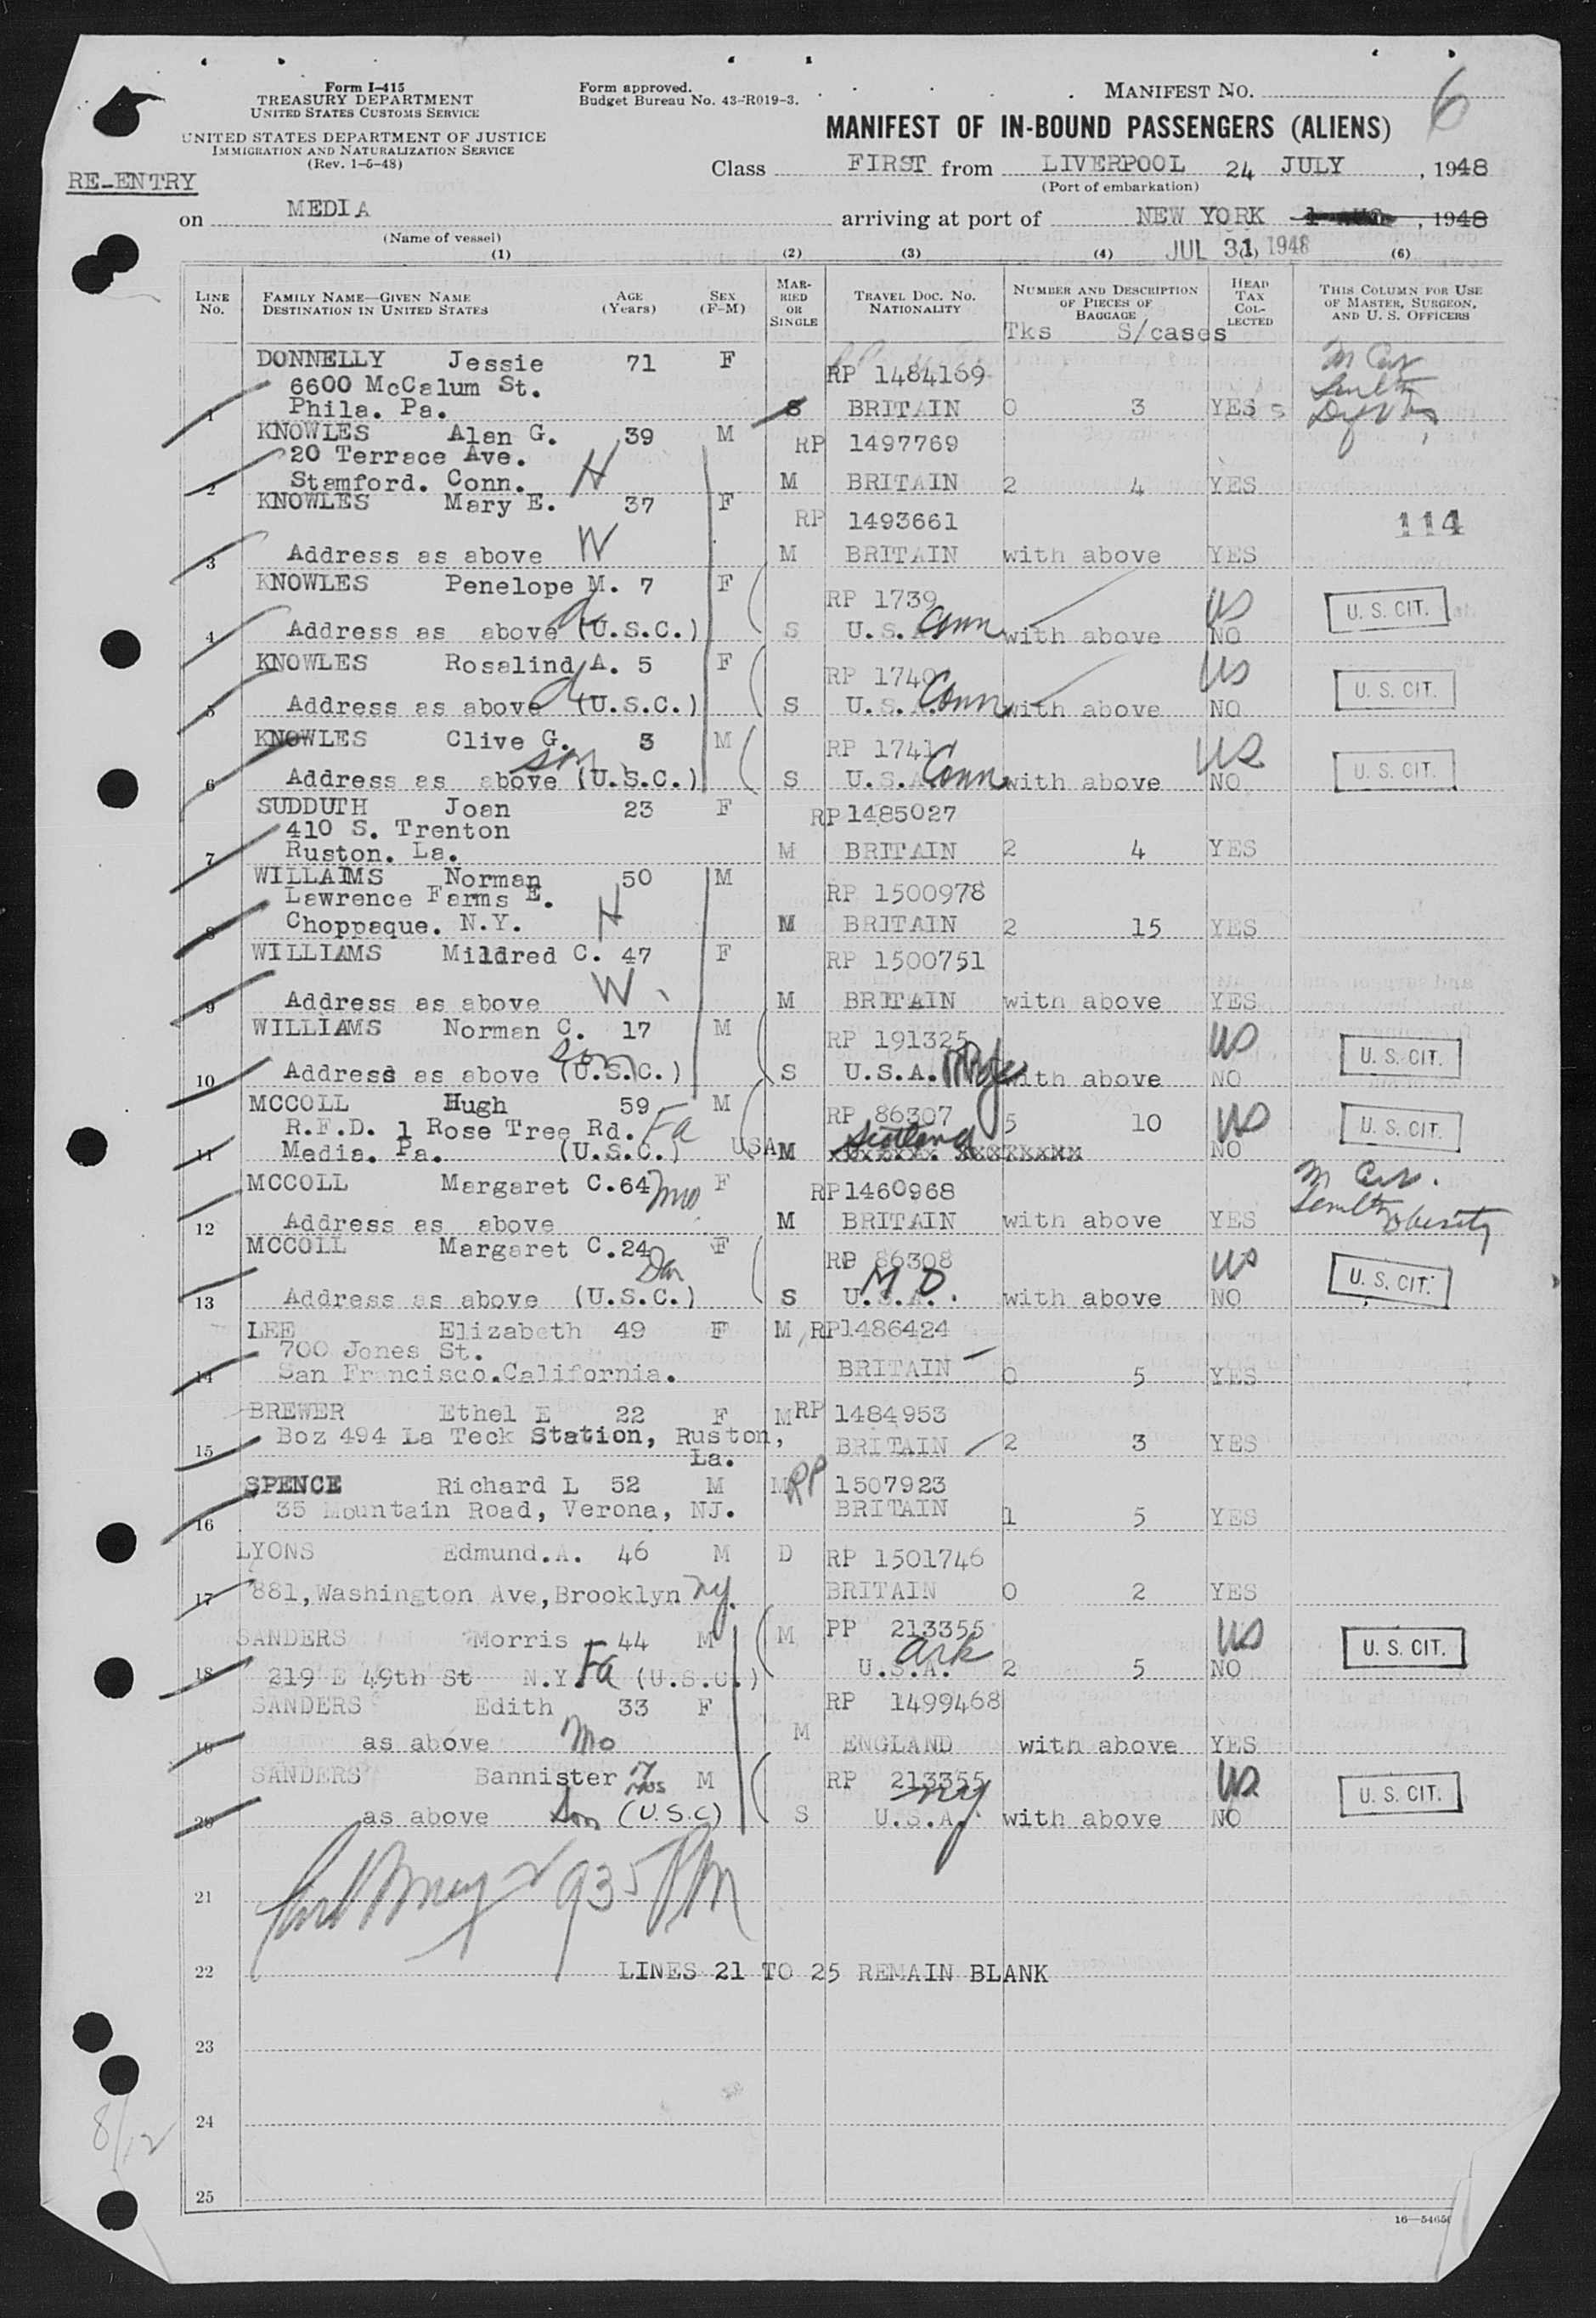 Form I-415
TREASURY DEPARTMENT
UNITED STATES CUSTOMS SERVICE
UNITED STATES DEPARTMENT OF JUSTICE
IMMIGRATION AND NATURALIZATION SERVICE
(Rev. 1-5-48)
Form approved.
Budget Bureau No. 43-R019-3.
MANIFEST NO. 6
MANIFEST OF IN-BOUND PASSENGERS (ALIENS)
RE-ENTRY
Class FIRST from LIVERPOOL 24 JULY, 1948
(Port of embarkation)
on MEDIA arriving at port of NEW YORK 1948
(Name of vessel)
JUL 31 1948
(1) (2) (3) (4) (6)
LINE No. FAMILY NAME—GIVEN NAME DESTINATION IN UNITED STATES AGE (Years) SEX (F-M) MARRIED OR SINGLE TRAVEL DOC. NO. NATIONALITY NUMBER AND DESCRIPTION OF PIECES OF BAGGAGE HEAD TAX COLLECTED THIS COLUMN FOR USE OF MASTER, SURGEON, AND U. S. OFFICERS
Tks S/cases
DONNELLY Jessie 71 F RP 1484169
6600 McCalum St.
1 Phila. Pa. S BRITAIN 0 3 YES
KNOWLES Alan G. 39 M RP 1497769
20 Terrace Ave.
2 Stamford. Conn. H M BRITAIN 2 4 YES
KNOWLES Mary E. 37 F RP 1493661 114
3 Address as above W M BRITAIN with above YES
KNOWLES Penelope M. 7 F RP 1739 US U. S. CIT.
4 Address as above d (U.S.C.) S U.S. Conn with above NO
KNOWLES Rosalind A. 5 F RP 1740 US U. S. CIT.
5 Address as above d (U.S.C.) S U.S. Conn with above NO
KNOWLES Clive G. 3 M RP 1741 US U. S. CIT.
6 Address as above son (U.S.C.) S U.S.A. Conn with above NO
SUDDUTH Joan 23 F RP 1485027
410 S. Trenton
7 Ruston. La. M BRITAIN 2 4 YES
WILLAIMS Norman 50 M RP 1500978
Lawrence Farms E.
8 Choppaque. N.Y. H M BRITAIN 2 15 YES
WILLIAMS Mildred C. 47 F RP 1500751
9 Address as above W M BRITAIN with above YES
WILLIAMS Norman C. 17 M RP 191325 US U. S. CIT.
10 Address as above son (U.S.C.) S U.S.A. with above NO
MCCOLL Hugh 59 M RP 86307 5 10 US U. S. CIT.
R.F.D. 1 Rose Tree Rd. Fa
11 Media. Pa. (U.S.C.) USA M Scotland NO
MCCOLL Margaret C. 64 mo F RP 1460968
12 Address as above M BRITAIN with above YES Obesity
MCCOLL Margaret C. 24 Dau F RP 86308 US U. S. CIT.
13 Address as above (U.S.C.) S U.S.A. M D. with above NO
LEE Elizabeth 49 F M RP 1486424
700 Jones St.
14 San Francisco. California. BRITAIN 0 5 YES
BREWER Ethel E 22 F M RP 1484953
15 Boz 494 La Teck Station, Ruston, La. BRITAIN 2 3 YES
SPENCE Richard L 52 M M RP 1507923
16 35 Mountain Road, Verona, NJ. BRITAIN 1 5 YES
LYONS Edmund. A. 46 M D RP 1501746
17 881, Washington Ave, Brooklyn ny. BRITAIN 0 2 YES
SANDERS Morris 44 M M PP 213355 US U. S. CIT.
18 219 E 49th St N.Y. Fa (U.S.C.) U.S.A. Ark 2 5 NO
SANDERS Edith 33 F RP 1499468
19 as above Mo M ENGLAND with above YES
SANDERS Bannister 7 mos M RP 213355 US U. S. CIT.
20 as above Son (U.S.C) S U.S.A. ny with above NO
21 935 PM
22 LINES 21 TO 25 REMAIN BLANK
23
24
8/12
25